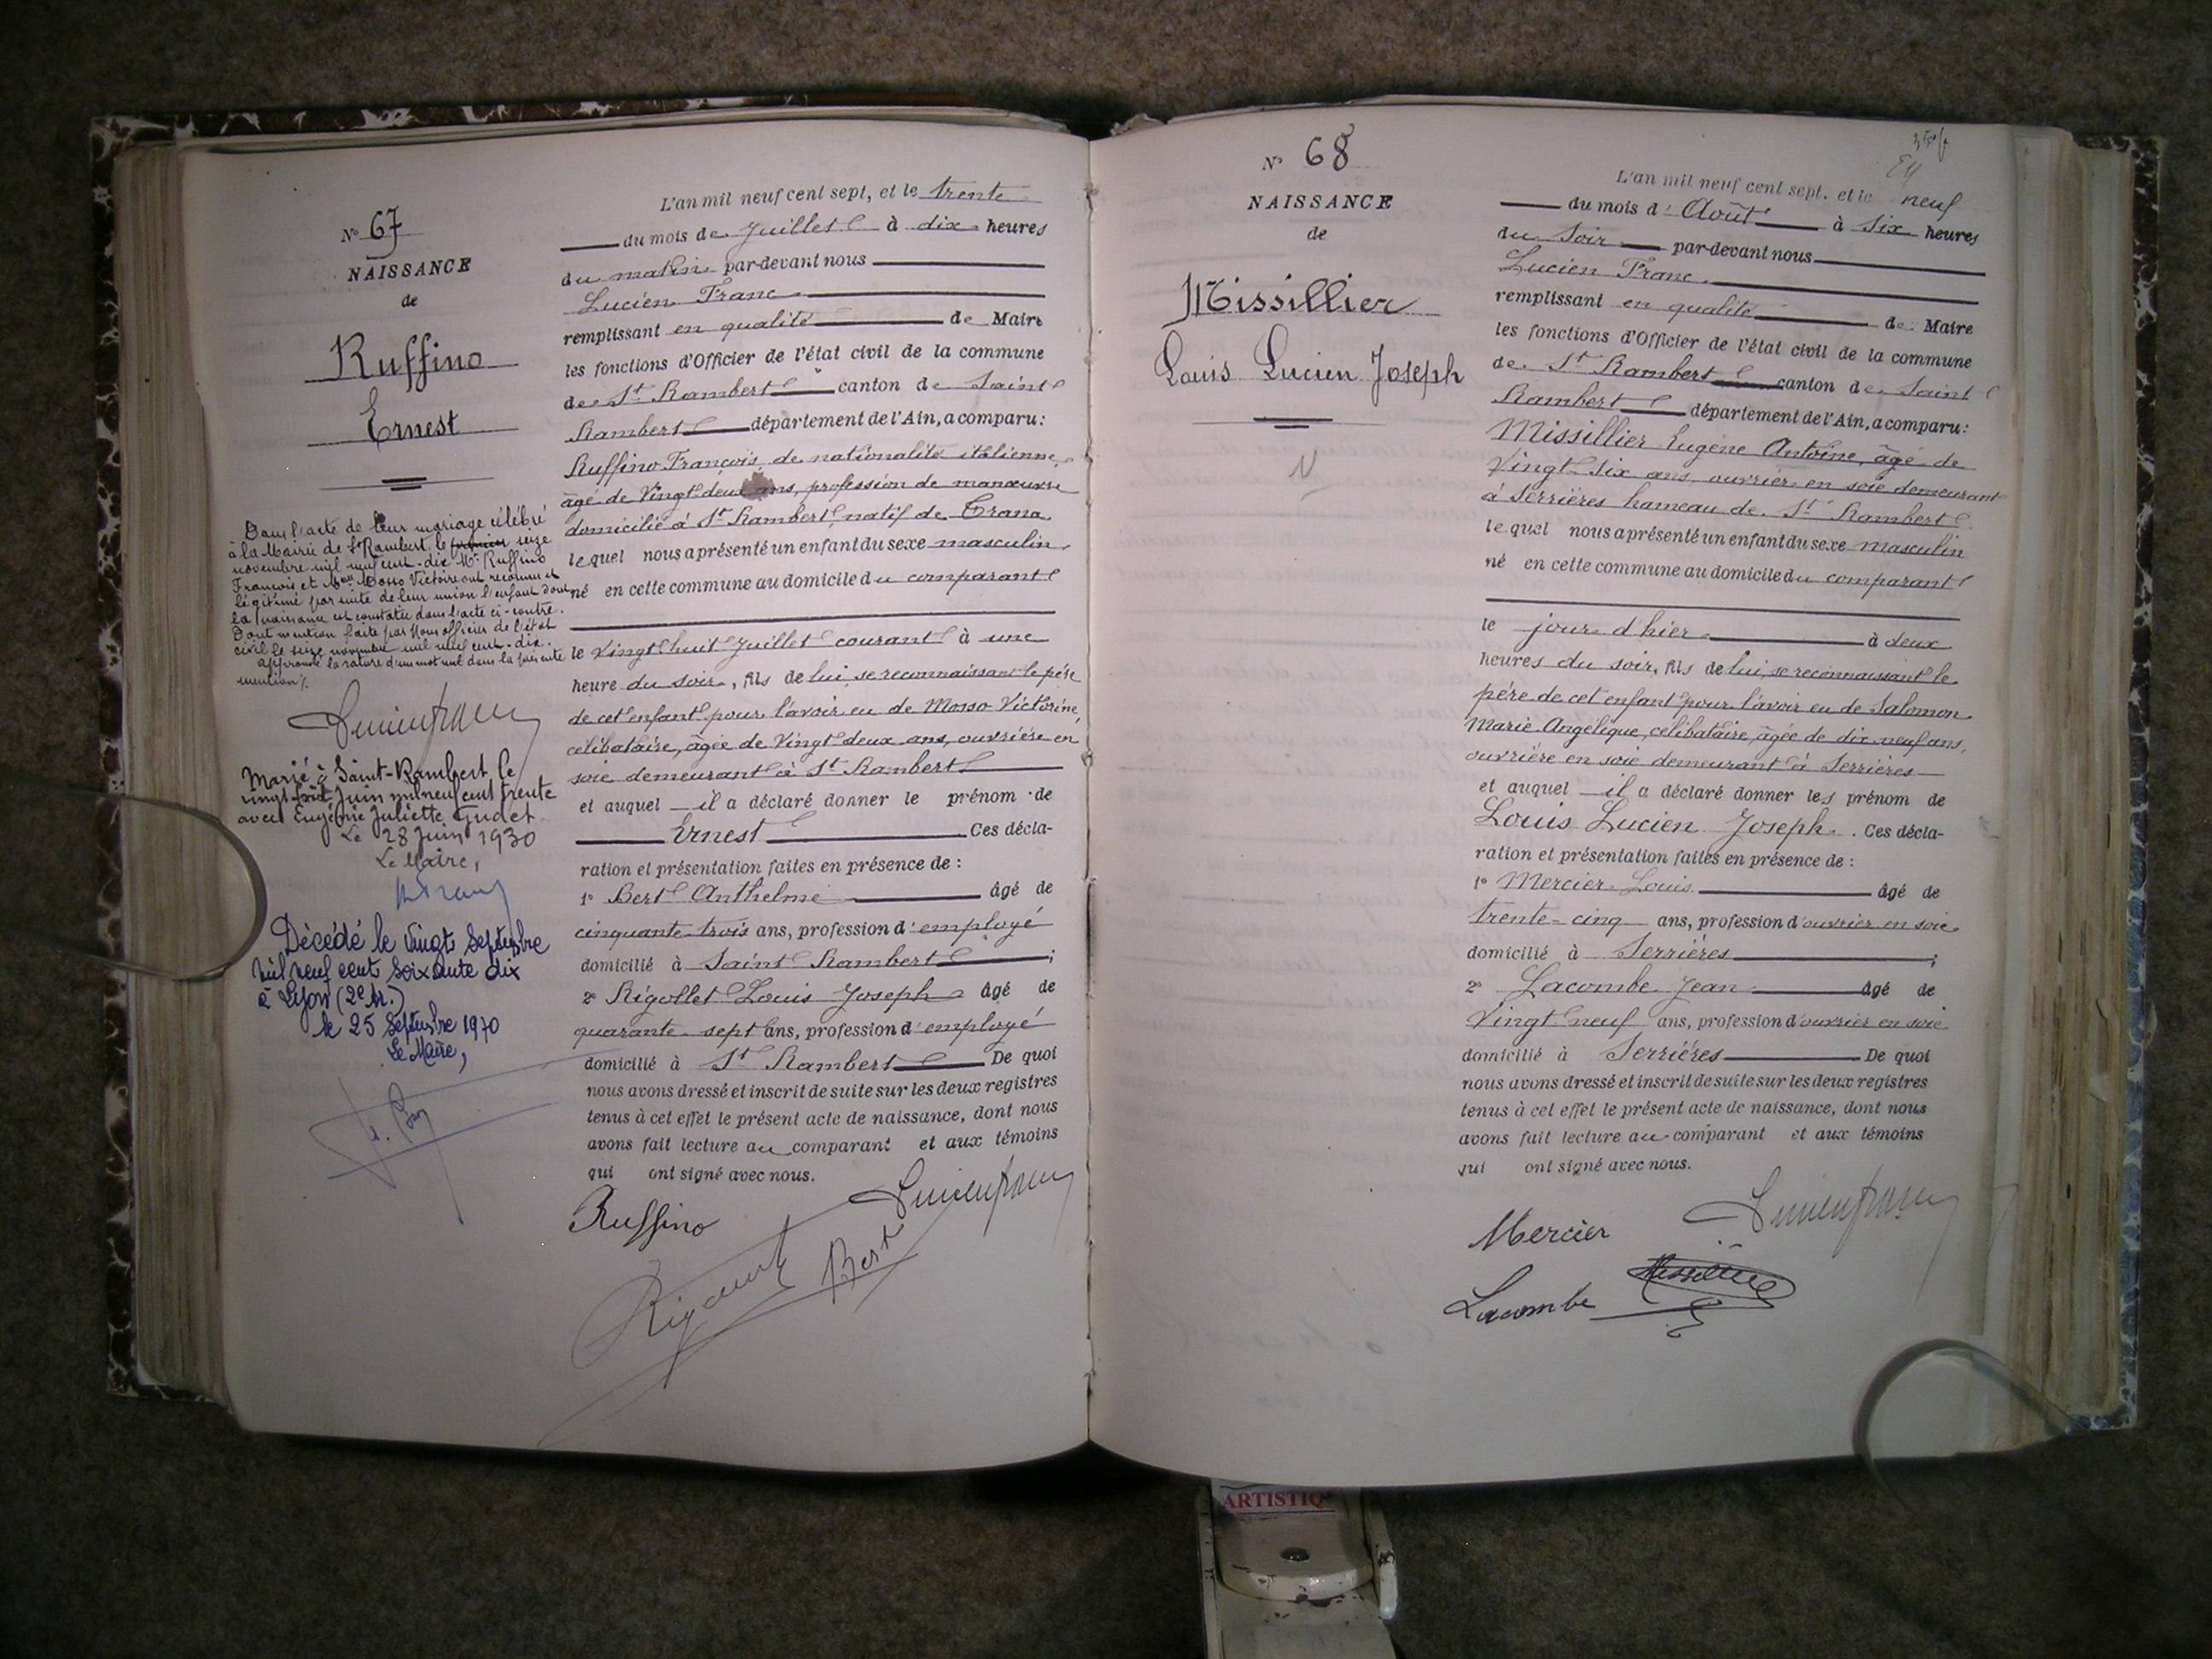 N° 67
NAISSANCE
de
Ruffino
Ernest
Dans l'acte de leur mariage célébré
à la Mairie de St Rambert, le seize
novembre mil neuf cent-dix Mr Ruffino
François et Mosso Victoire ont reconnu et
légitimé par suite de leur union l'enfant dont
la naissance est constatée dans l'acte ci-contre.
Dont mention faite par Nous officier de l'état
civil le seize novembre mil neuf cent-dix.
approuvé la rature d'un mot nul dans la présente
mention.
Lucien Franc
Marié à Saint-Rambert, le
vingt huit Juin mil neuf cent trente
avec Eugénie Juliette Gudet
Le 28 Juin 1930
Le Maire,
Décédé le vingt Septembre
mil neuf cent soixante dix
à Lyon (2e Ar.)
le 25 Septembre 1970
Le Maire,
L'an mil neuf cent sept, et le trente
du mois de Juillet à dix heures
du matin par-devant nous
Lucien Franc
remplissant en qualité de Maire
les fonctions d'Officier de l'état civil de la commune
de St Rambert canton de Saint
Rambert département de l'Ain, a comparu:
Ruffino François, de nationalité italienne,
âgé de Vingt-deux ans, profession de manœuvre
domicilié à St Rambert, natif de Trana
le quel nous a présenté un enfant du sexe masculin
né en cette commune au domicile du comparant
le Vingt huit Juillet courant à une
heure du soir, fils de lui, se reconnaissant le père
de cet enfant pour l'avoir eu de Mosso Victorine,
célibataire, âgée de Vingt deux ans, ouvrière en
soie demeurant à St Rambert
et auquel il a déclaré donner le prénom de
Ernest Ces décla-
ration et présentation faites en présence de :
1° Bert Anthelme âgé de
cinquante-trois ans, profession d'employé
domicilié à Saint Rambert ;
2° Rigollet Louis Joseph âgé de
quarante-sept ans, profession d'employé
domicilié à St Rambert De quoi
nous avons dressé et inscrit de suite sur les deux registres
tenus à cet effet le présent acte de naissance, dont nous
avons fait lecture au comparant et aux témoins
qui ont signé avec nous.
Ruffino
Lucien Franc
Bert
N° 68
NAISSANCE
de
Missillier
Louis Lucien Joseph
L'an mil neuf cent sept, et le neuf
du mois d'Août à six heures
du Soir par-devant nous
Lucien Franc
remplissant en qualité de Maire
les fonctions d'Officier de l'état civil de la commune
de St Rambert canton de Saint
Rambert département de l'Ain, a comparu:
Missillier Eugène Antoine, âgé de
Vingt-six ans, ouvrier en soie demeurant
à Serrières hameau de St Rambert
le quel nous a présenté un enfant du sexe masculin
né en cette commune au domicile du comparant
le jour d'hier à deux
heures du soir, fils de lui, se reconnaissant le
père de cet enfant pour l'avoir eu de Salomon
Marie Angélique, célibataire, âgée de dix-neuf ans,
ouvrière en soie demeurant à Serrières
et auquel il a déclaré donner les prénom de
Louis Lucien Joseph. Ces décla-
ration et présentation faites en présence de :
1° Mercier Louis âgé de
trente-cinq ans, profession d'ouvrier en soie
domicilié à Serrières ;
2° Lacombe Jean âgé de
Vingt neuf ans, profession d'ouvrier en soie
domicilié à Serrières De quoi
nous avons dressé et inscrit de suite sur les deux registres
tenus à cet effet le présent acte de naissance, dont nous
avons fait lecture au comparant et aux témoins
qui ont signé avec nous.
Mercier
Lucien Franc
Lacombe
Missillier
ARTISTIQ